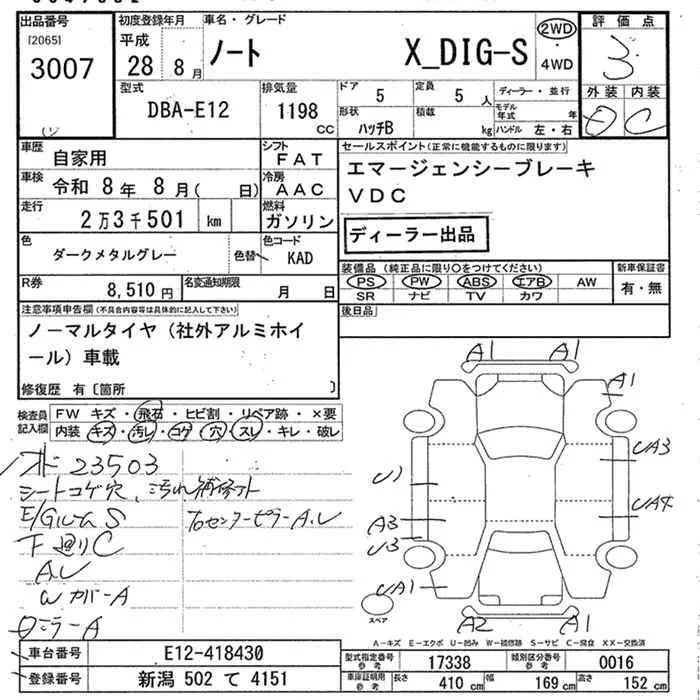 出品番号 初度登録年月 車名・グレード 評価点
[2065] 平成 ノート X_DIG-S 2WD・4WD 3
3007 28 8月
型式 排気量 ドア 5 定員 5人 ディーラー・並行 外装 内装
DBA-E12 1198 CC 形状 ハッチB 積載 kg モデル年式 年 ハンドル 左・右 D C
車歴 自家用 シフト FAT セールスポイント(正常に機能するものに限ります)
車検 令和 8年 8月( 日) 冷房 AAC エマージェンシーブレーキ
走行 2万3千501 km 燃料 ガソリン VDC
色 ダークメタルグレー 色替 色コード KAD ディーラー出品
R券 8,510円 名変通知期限 月 日
装備品(純正品に限り○をつけてください) 新車保証書
PS PW ABS エアB AW 有・無
SR ナビ TV カワ
後日品
注意事項申告欄(不具合内容等は具体的に記入して下さい)
ノーマルタイヤ(社外アルミホイ
ール)車載
修復歴 有〔箇所 〕
検査員記入欄 FW キズ・飛石・ヒビ割・リペア跡・×要
内装 キズ・汚レ・コゲ・穴・スレ・キレ・破レ
23503
シートコゲ穴、汚れ補修ト
E/Gルーム S Toセンターピラー A.U
下廻り C
A.U
W カバーA
ミラーA
A1 A1
A1
UA3
U1
UA4
A3
U3
UA1
スペア
A2 A1
A-キズ E-エクボ U-凹み W-補修跡 S-サビ C-腐食 XX-交換済
車台番号 E12-418430
登録番号 新潟 502 て 4151
型式指定番号参考 17338 類別区分番号参考 0016
車庫証明用参考 長さ 410 cm 幅 169 cm 高さ 152 cm